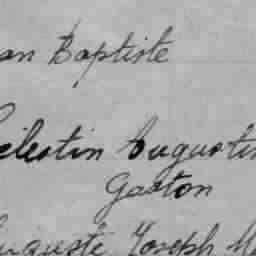 an Baptiste
Celestin Augustin
Gaston
Auguste Joseph M